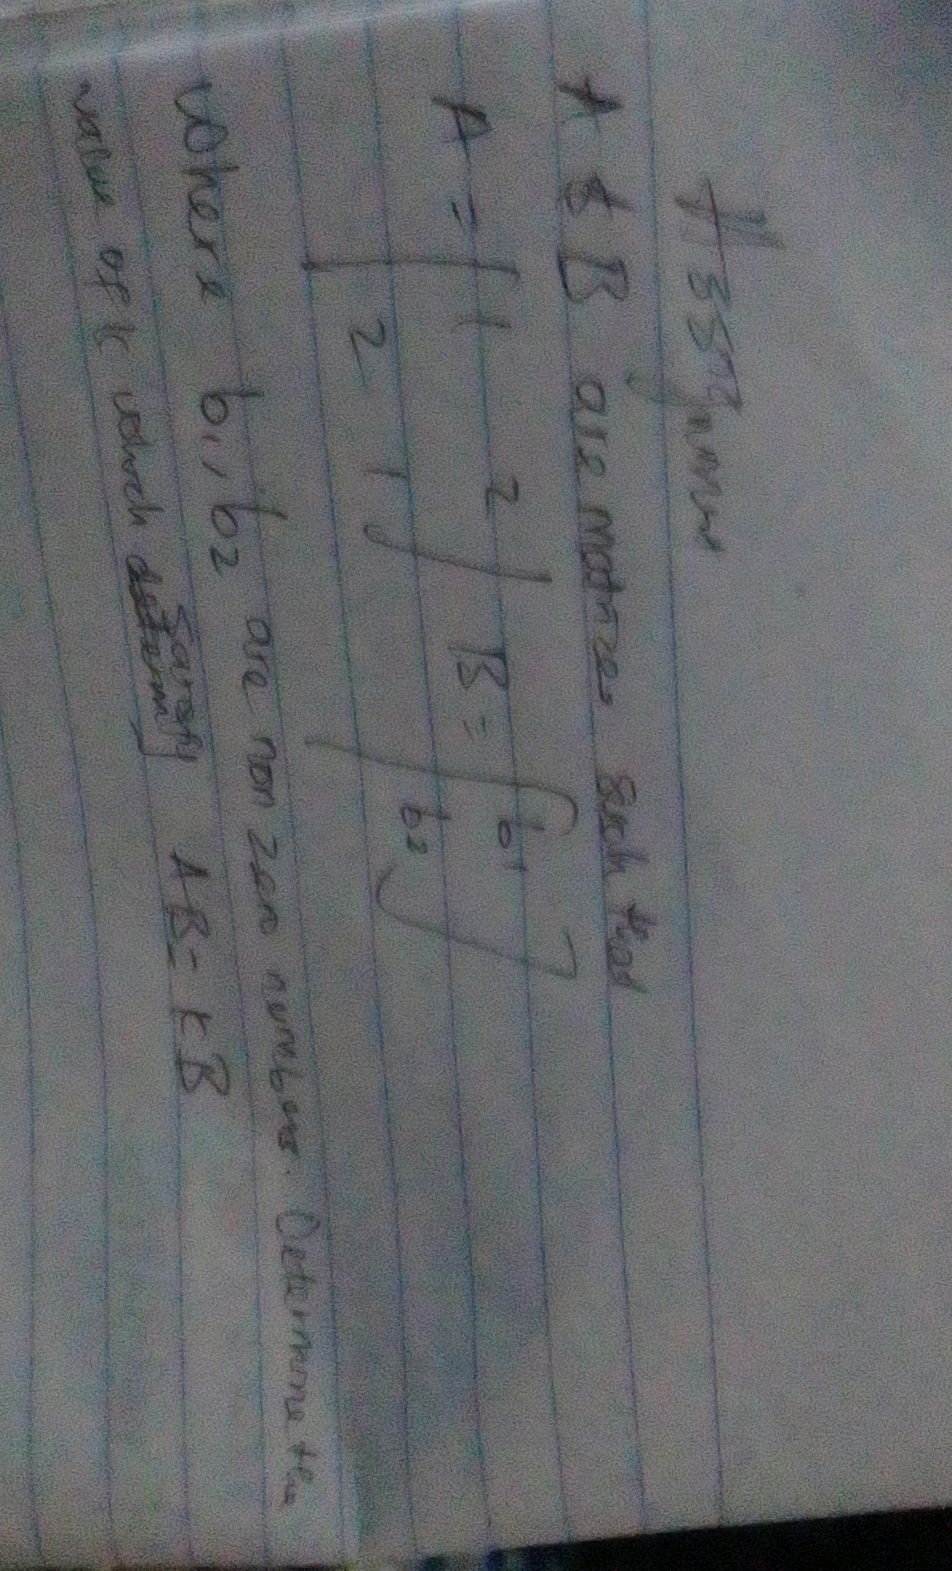 Assignment
A & B are matrices such that
A = [1 2 B = [b1]
2 1] b2]
Where b1, b2 are non zero numbers. Determine the
value of k which satisfy AB = kB